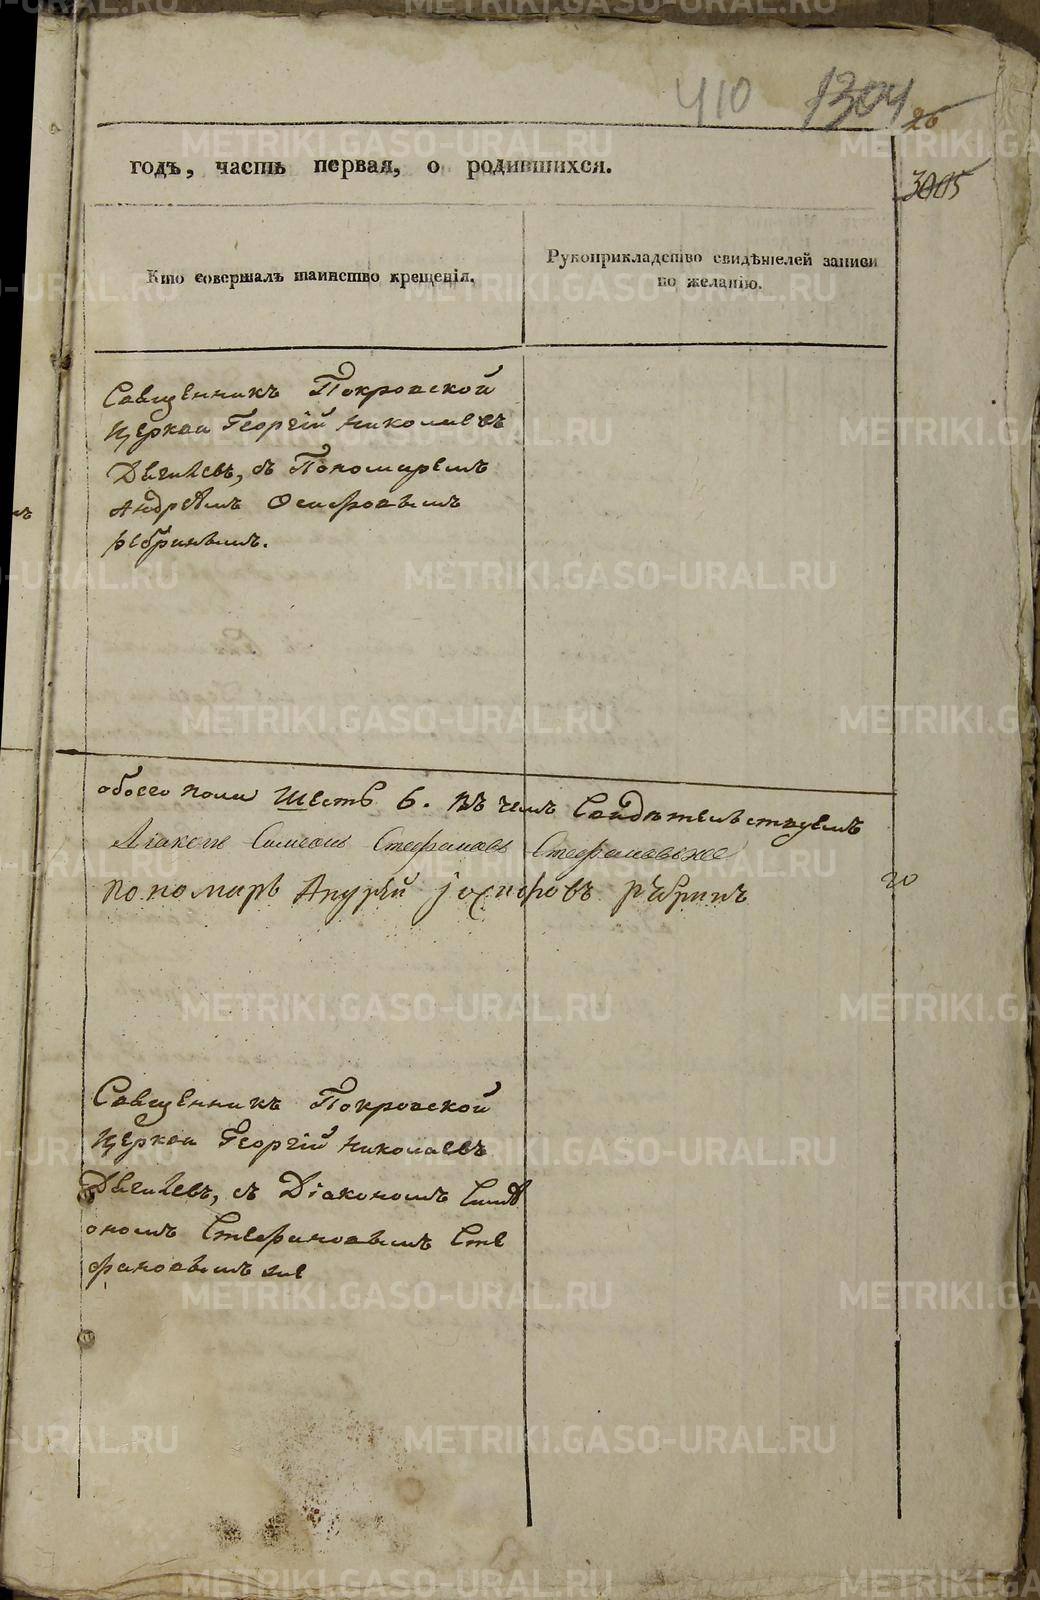 410 1304 26
годъ, часть первая, о родившихся.
3005
Кто совершалъ таинство крещенія.
Рукоприкладство свидѣтелей записи
по желанію.
Священникъ Покровской
Церкви Георгій Николаевъ
Дягилевъ, съ Пономаремъ
Андреѣмъ Осиповымъ
Ребринымъ.
обоего пола Шесть 6. Въ чемъ Свидѣтельствуемъ
Діаконъ Симеонъ Стефановъ Стефановыже
пономарь Андрѣй Іосифовъ рѣбринъ
20
Священникъ Покровской
Церкви Георгій Николаевъ
Дягилевъ, съ Діакономъ Симе
ономъ Стефановымъ Сте
фановымъ же
METRIKI.GASO-URAL.RU